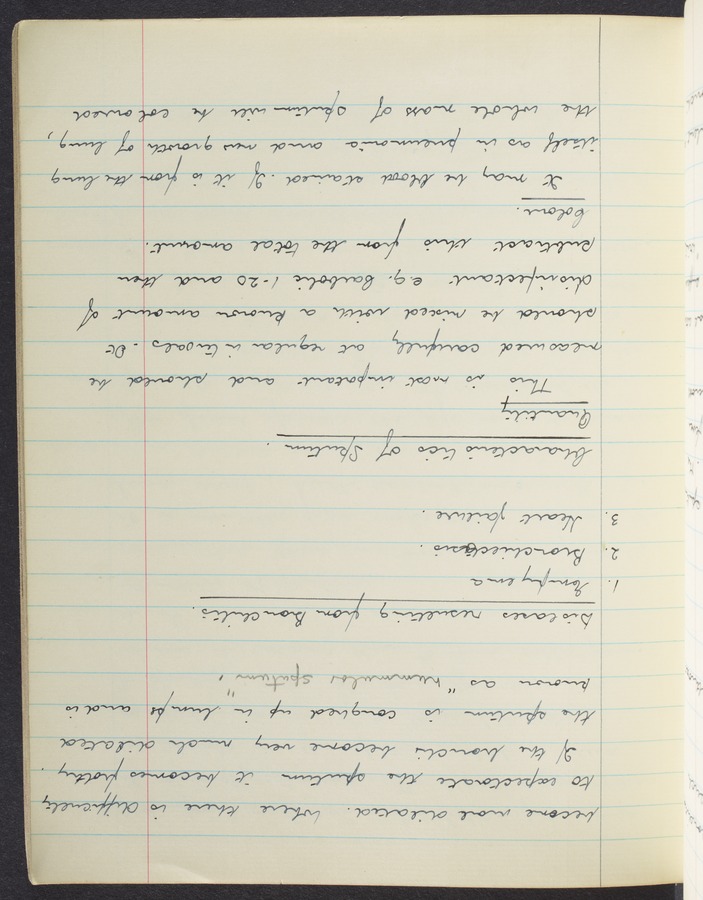 become more dilated. Where there is difficulty
to expectorate the sputum it becomes frothy.
If the bronchi become very much dilated
the sputum is coughed up in lumps and is
known as "nummular sputum".
Diseases resulting from Bronchitis.
1. Empyema
2. Bronchiectasis.
3. Heart failure.
Characteristics of Sputum.
Quantity
This is most important and should be
measured carefully at regular intervals. It
should be mixed with a known amount of
disinfectant e.g. Carbolic 1-20 and then
subtract this from the total amount.
Colour.
It may be blood stained. If it is from the lung
itself as in pneumonia and new growth of lung,
the whole mass of sputum will be coloured